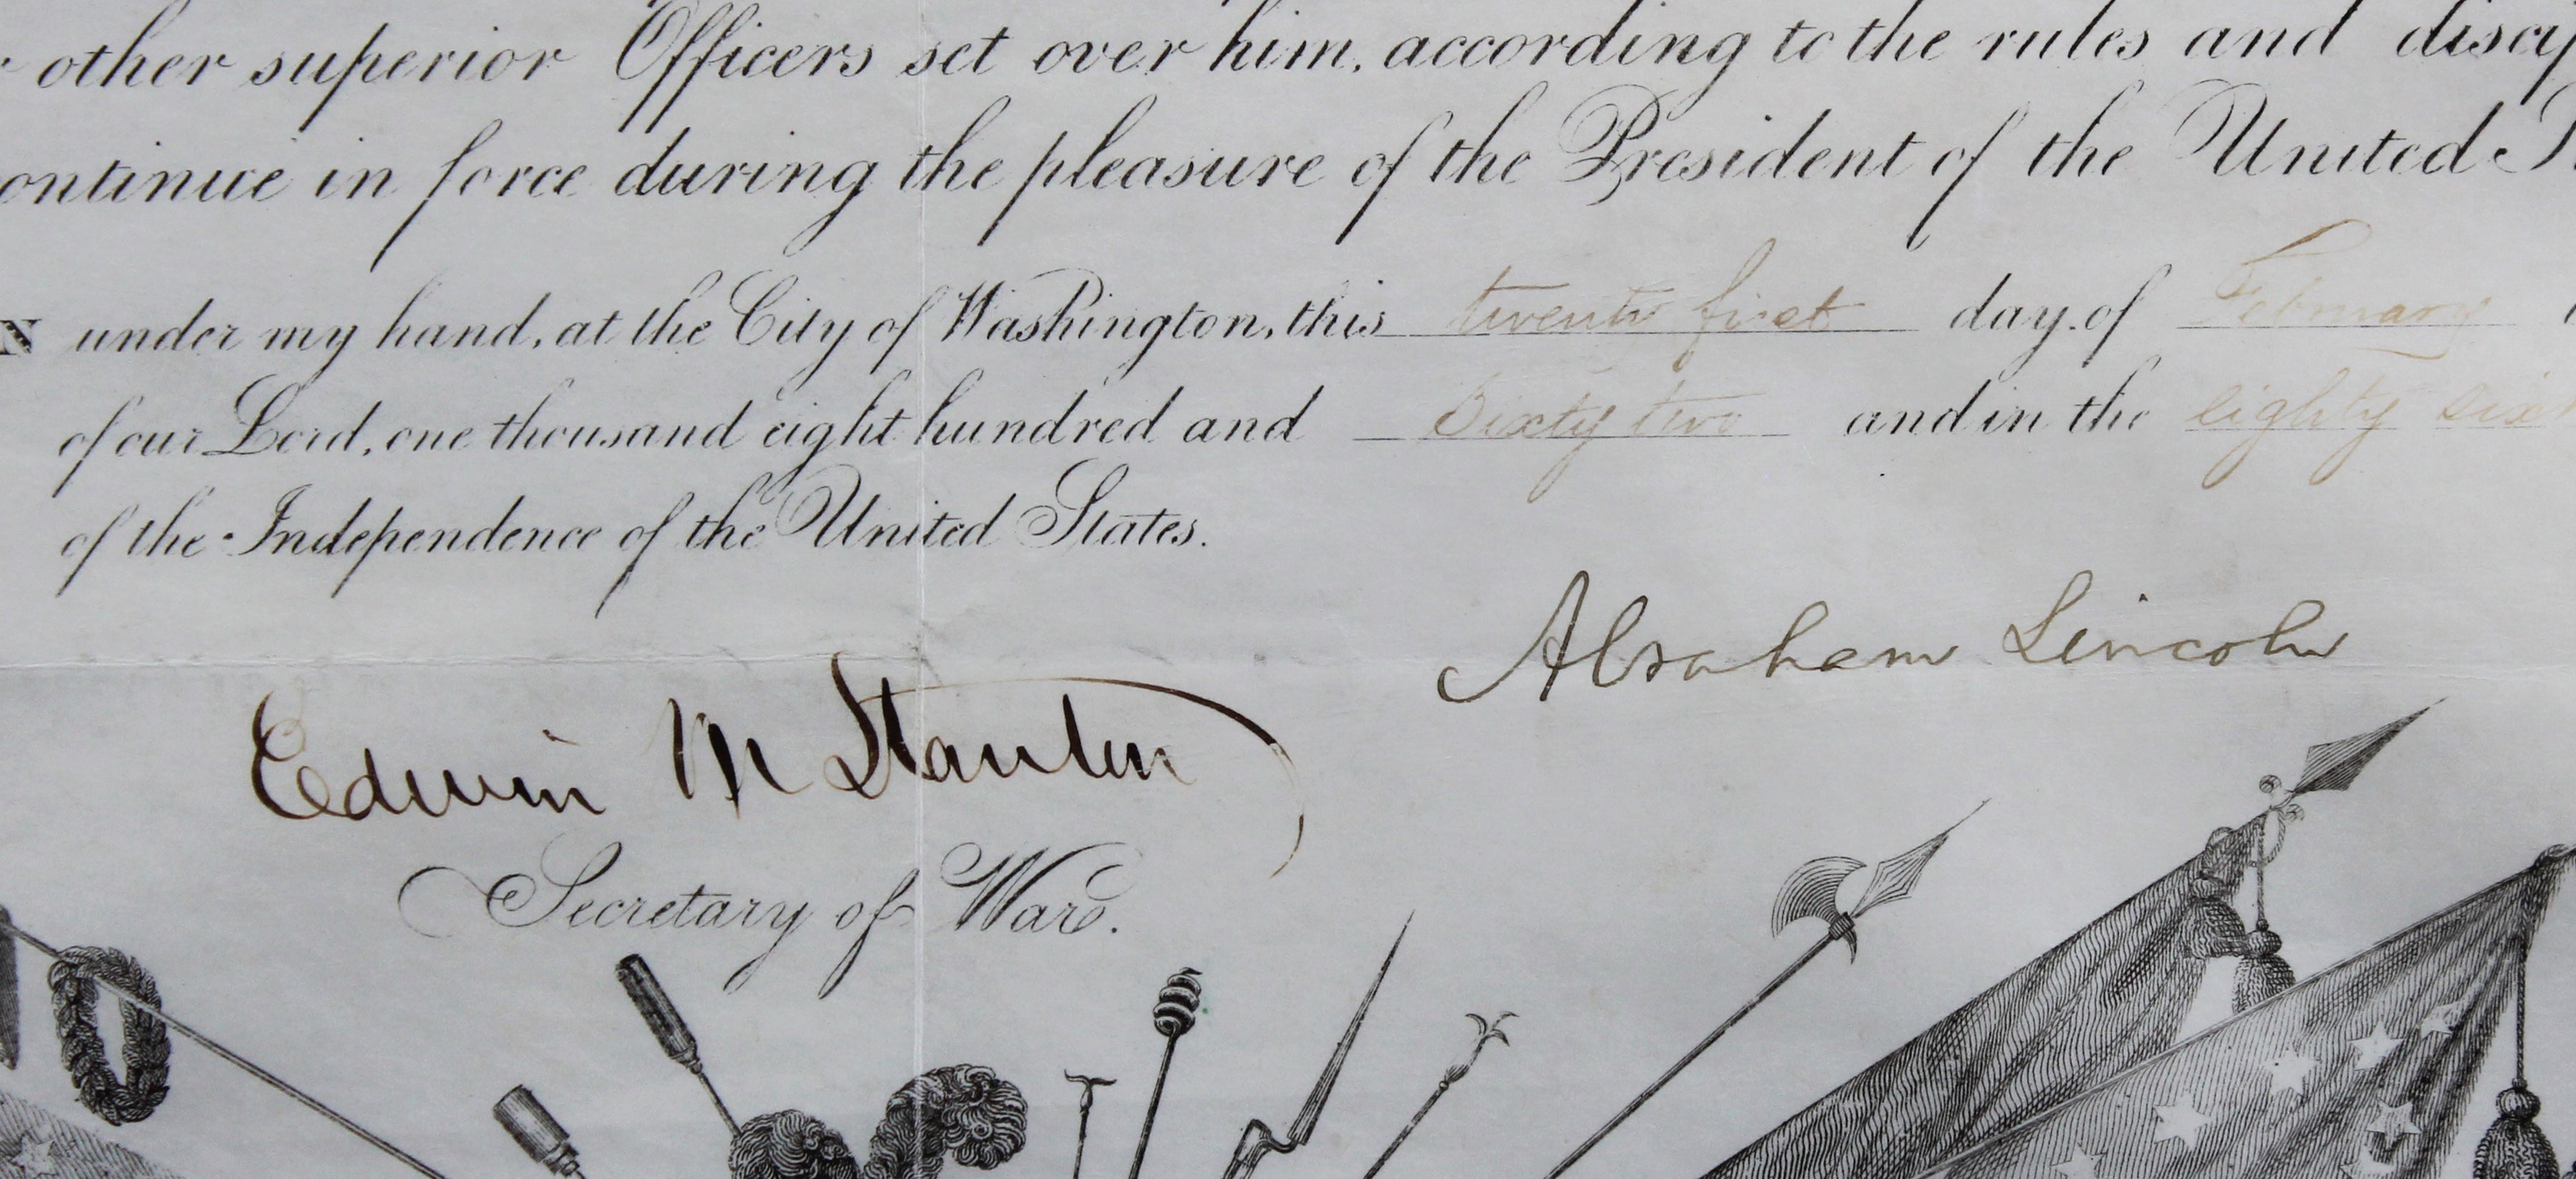 other superior Officers set over him, according to the rules and discip
ontinue in force during the pleasure of the President of the United S
N under my hand, at the City of Washington, this twenty first day of February
of our Lord, one thousand eight hundred and Sixty two and in the eighty six
of the Independence of the United States.
Abraham Lincoln
Edwin M Stanton
Secretary of War.